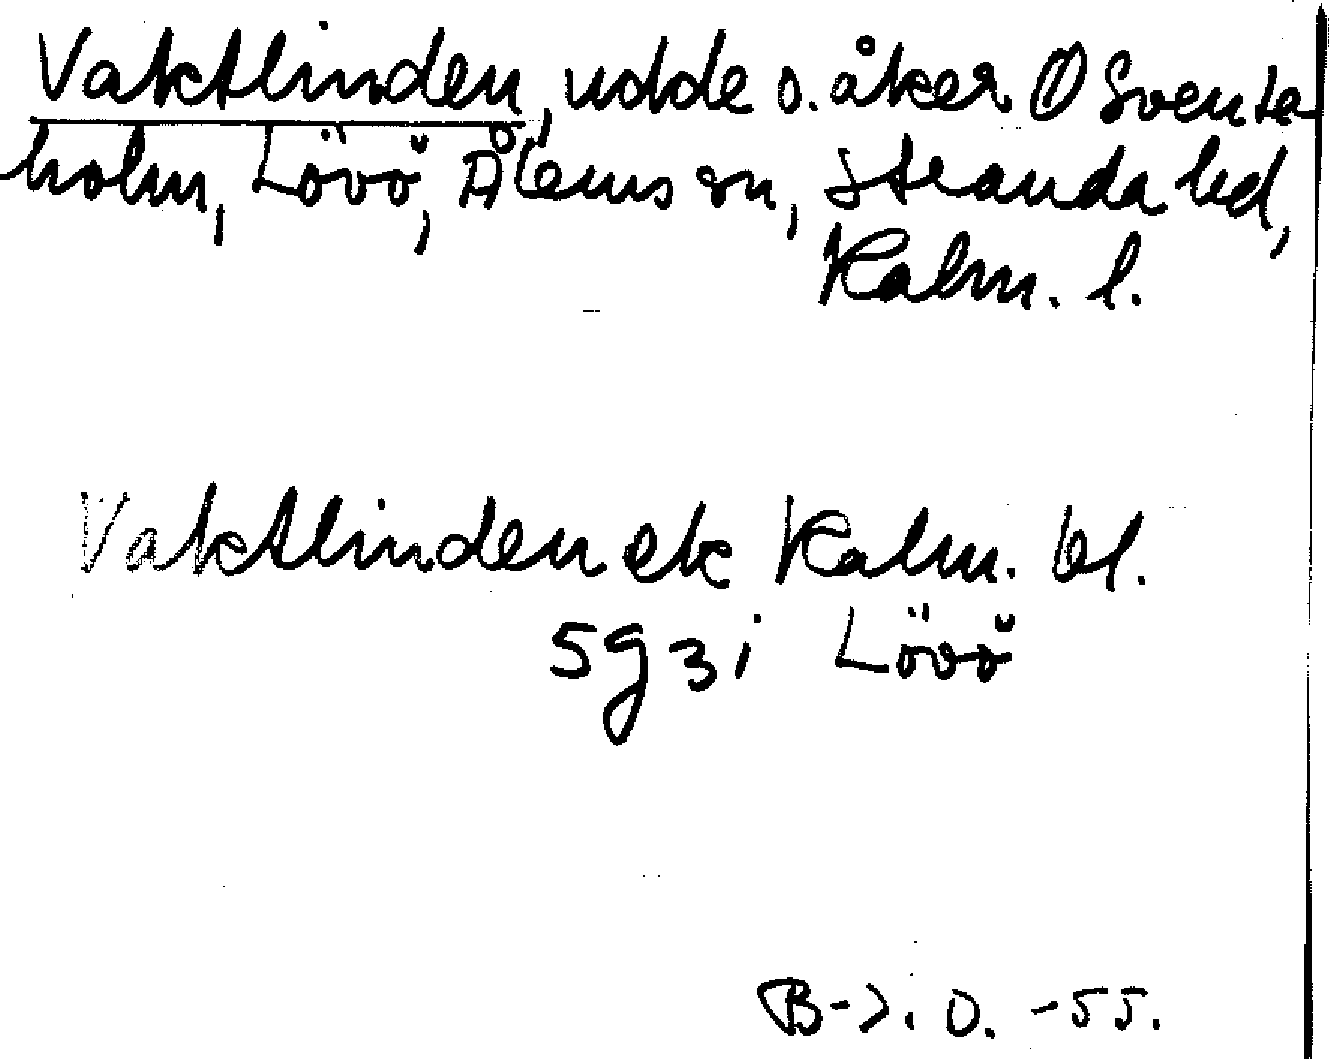 Vaktlinden, udde o. åker O Sventa-
holm, Lövö, Ålems sn, Stranda hd,
Kalm. l.
Vaktlinden ek Kalm. bl.
5g3i Lövö
B- . O. -55.